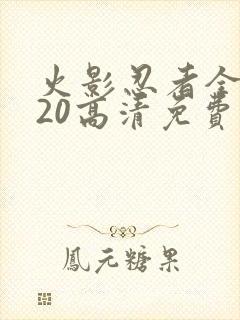 火影忍者全
20高清免費
鳳元糖果